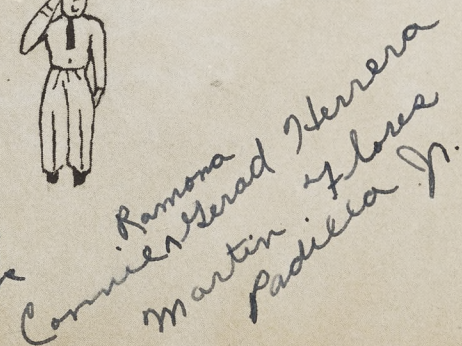 Ramona
Connie Gerad Herrera
Martin Flores
Padilla Jr.